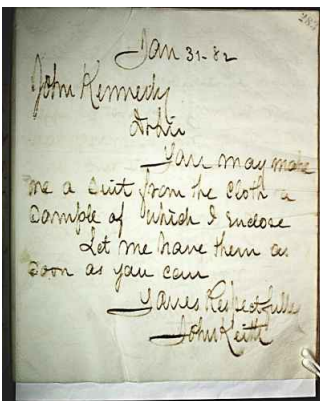 Jan 31-82
John Kennedy
You may make
me a Suit from the Cloth a
Sample of which I Enclose
Let me have them as
Soon as you can
Yours Respectfully
John Keith